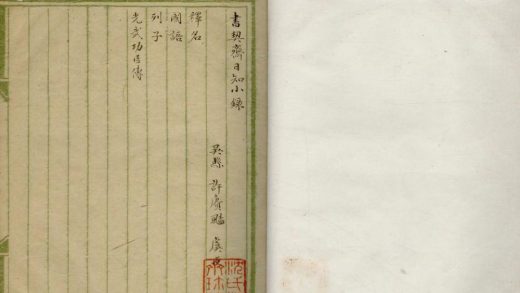 書契齋日知小錄
釋名
國語
列子
光武功臣傳
吳縣 許 虞
沈氏